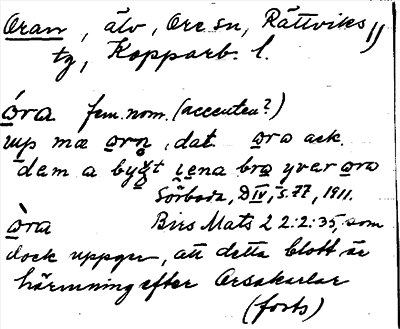 Oran, älv, Ore sn, Rättviks
tg, Kopparb. l.
óra fem. nom. (accenten?)
up mæ orn, dat. ora ack.
dem a bygt iena bra yver ora
Sörboda, D IV, s. 77, 1911.
òra Birs Mats 2 2:2:35, som
dock uppger, att detta blott är
härmning efter Orsakarlar
(forts)